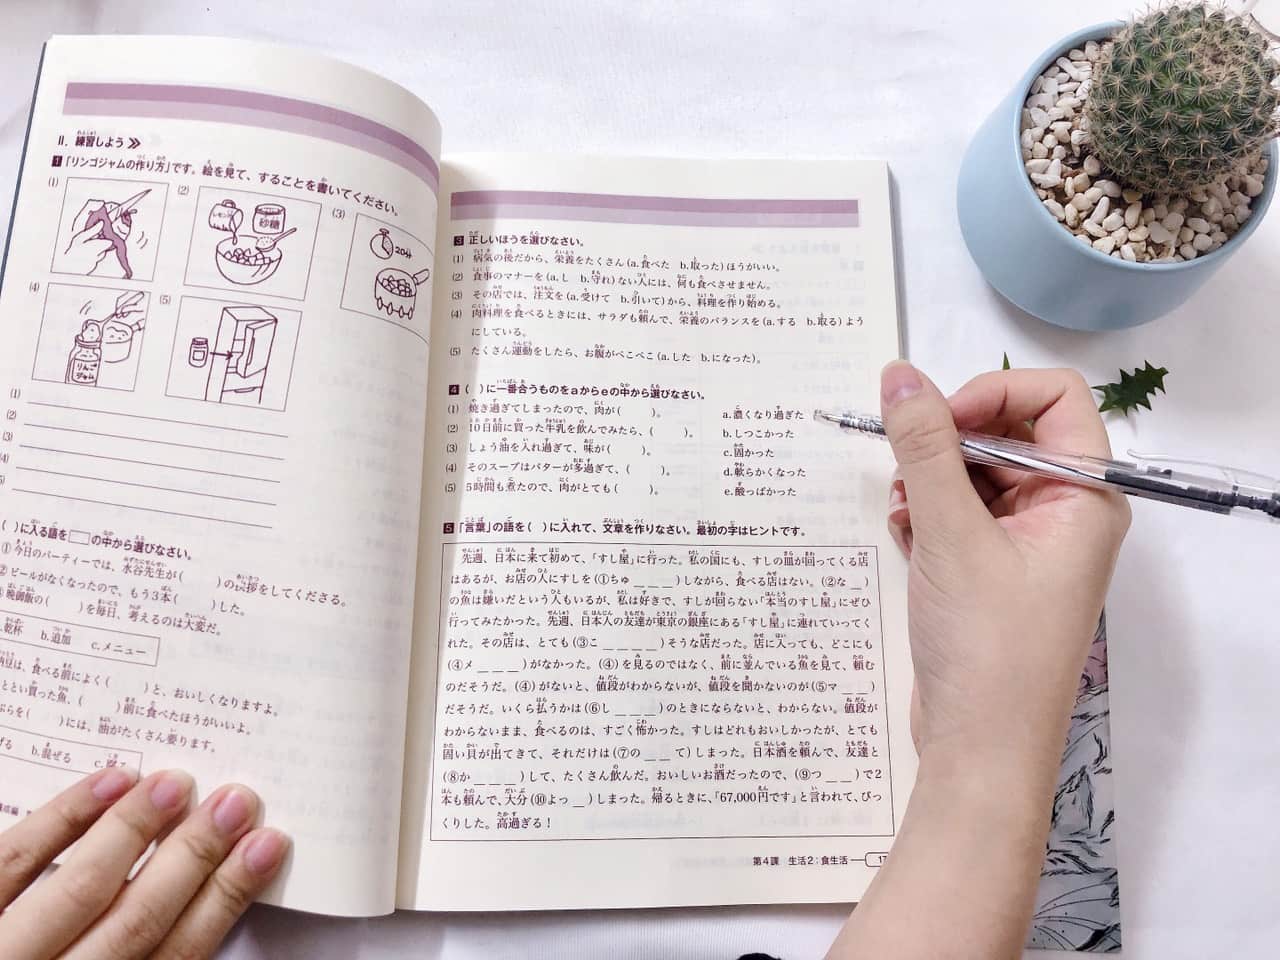 II. 練習しよう
1 「リンゴジャムの作り方」です。絵を見て、することを書いてください。
(1)
(2)
レモン
砂糖
(3)
20分
(4)
りんご
ジャム
(5)
(1)
(2)
(3)
(4)
( )に入る語を□の中から選びなさい。
① 今日のパーティーでは、水谷先生が( )の挨拶をしてくださる。
② ビールがなくなったので、もう3本( )した。
晩御飯の( )を毎日、考えるのは大変だ。
乾杯 b.追加 c.メニュー
納豆は、食べる前によく( )と、おいしくなりますよ。
買った魚、( )前に食べたほうがいいよ。
( )には、油がたくさん要ります。
b.混ぜる c.
3 正しいほうを選びなさい。
(1) 病気の後だから、栄養をたくさん(a.食べた b.取った)ほうがいい。
(2) 食事のマナーを(a.し b.守れ)ない人には、何も食べさせません。
(3) その店では、注文を(a.受けて b.引いて)から、料理を作り始める。
(4) 肉料理を食べるときには、サラダも頼んで、栄養のバランスを(a.する b.取る)よう
にしている。
(5) たくさん運動をしたら、お腹がぺこぺこ(a.した b.になった)。
4 ( )に一番合うものをaからeの中から選びなさい。
(1) 焼き過ぎてしまったので、肉が( )。 a.濃くなり過ぎた
(2) 10日前に買った牛乳を飲んでみたら、( )。 b.しつこかった
(3) しょう油を入れ過ぎて、味が( )。 c.固かった
(4) そのスープはバターが多過ぎて、( )。 d.軟らかくなった
(5) 5時間も煮たので、肉がとても( )。 e.酸っぱかった
5 「言葉」の語を( )に入れて、文章を作りなさい。最初の字はヒントです。
先週、日本に来て初めて、「すし屋」に行った。私の国にも、すしの皿が回ってくる店
はあるが、お店の人にすしを(①ちゅ _ _ _ )しながら、食べる店はない。(②な _ )
の魚は嫌いだという人もいるが、私は好きで、すしが回らない「本当のすし屋」にぜひ
行ってみたかった。先週、日本人の友達が東京の銀座にある「すし屋」に連れていってく
れた。その店は、とても(③こ _ _ _ _ )そうな店だった。店に入っても、どこにも
(④メ _ _ _ )がなかった。(④)を見るのではなく、前に並んでいる魚を見て、頼む
のだそうだ。(④)がないと、値段がわからないが、値段を聞かないのが(⑤マ _ _ )
だそうだ。いくら払うかは(⑥し _ _ _ )のときにならないと、わからない。値段が
わからないまま、食べるのは、すごく怖かった。すしはどれもおいしかったが、とても
固い貝が出てきて、それだけは(⑦の _ _ て)しまった。日本酒を頼んで、友達と
(⑧か _ _ _ )して、たくさん飲んだ。おいしいお酒だったので、(⑨つ _ _ )で2
本も頼んで、大分(⑩よっ _ )しまった。帰るときに、「67,000円です」と言われて、びっ
くりした。高過ぎる！
第4課 生活2：食生活 17